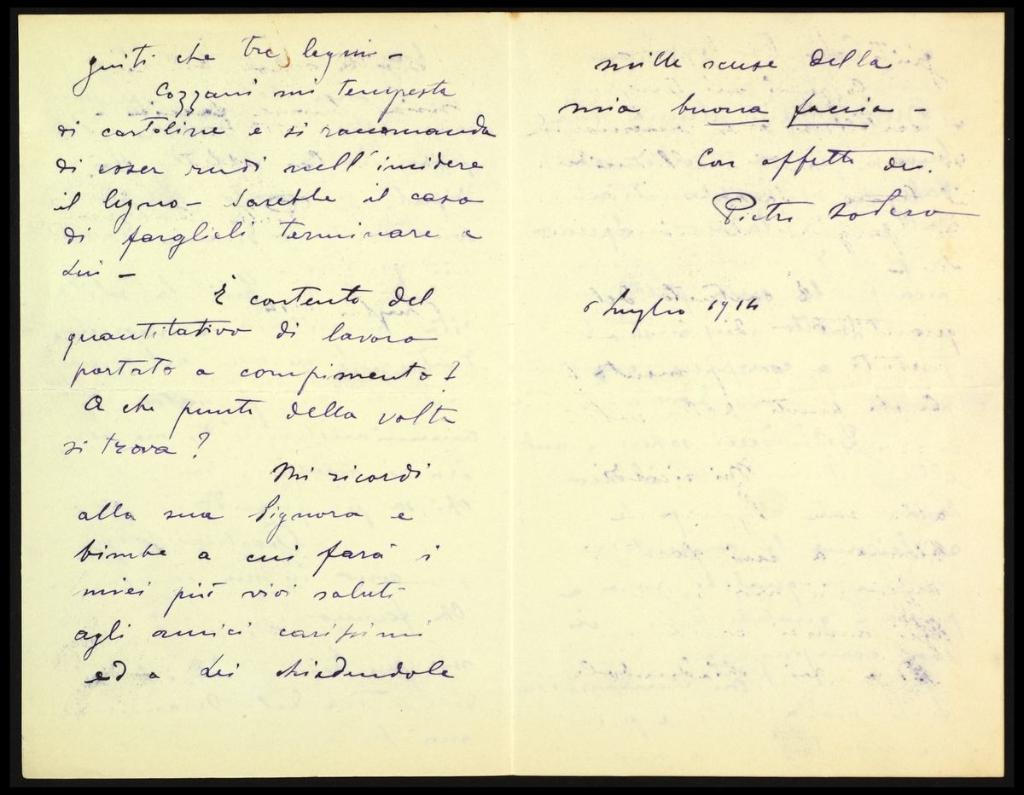 guiti che tre legni –
Cozzani mi tempesta
di cartoline e si raccomanda
di esser rudi nell'incidere
il legno – Sarebbe il caso
di farglieli terminare a
Lui –
È contento del
quantitativo di lavoro
portato a compimento?
A che punto della volta
si trova?
Mi ricordi
alla sua Signora e
bimbe a cui farà i
miei più vivi saluti
agli amici carissimi
ed a Lei chiedendole
mille scuse della
mia buona faccia –
Con affetto
Pietro
6 Luglio 1914